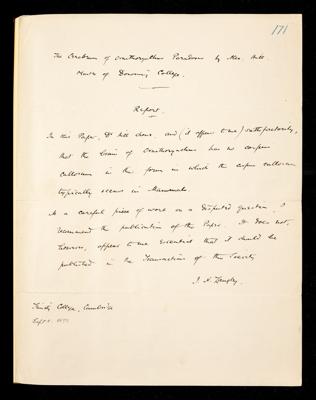 171
The Cerebrum of Ornithorynchus Paradoxus by Alex. Hill
Master of Downing College.
Report.
In this Paper, Dr Hill shows, and (it appears to me) satisfactorily,
that the brain of Ornithorynchus has no corpus
callosum in the form in which the corpus callosum
typically occurs in Mammals.
As a careful piece of work on a disputed question, I
recommend the publication of the Paper. It does not,
however, appear to me essential that it should be
published in the Transactions of the Society
J. N. Langley.
Trinity College, Cambridge
Sept